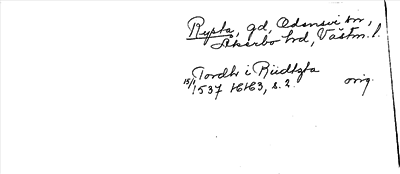 Rypta, gd, Odensvi sn,
Åkerbo hd, Västm. l.
Tordh i Riidtzta
15/1 1537 HH3, s. 2. orig.